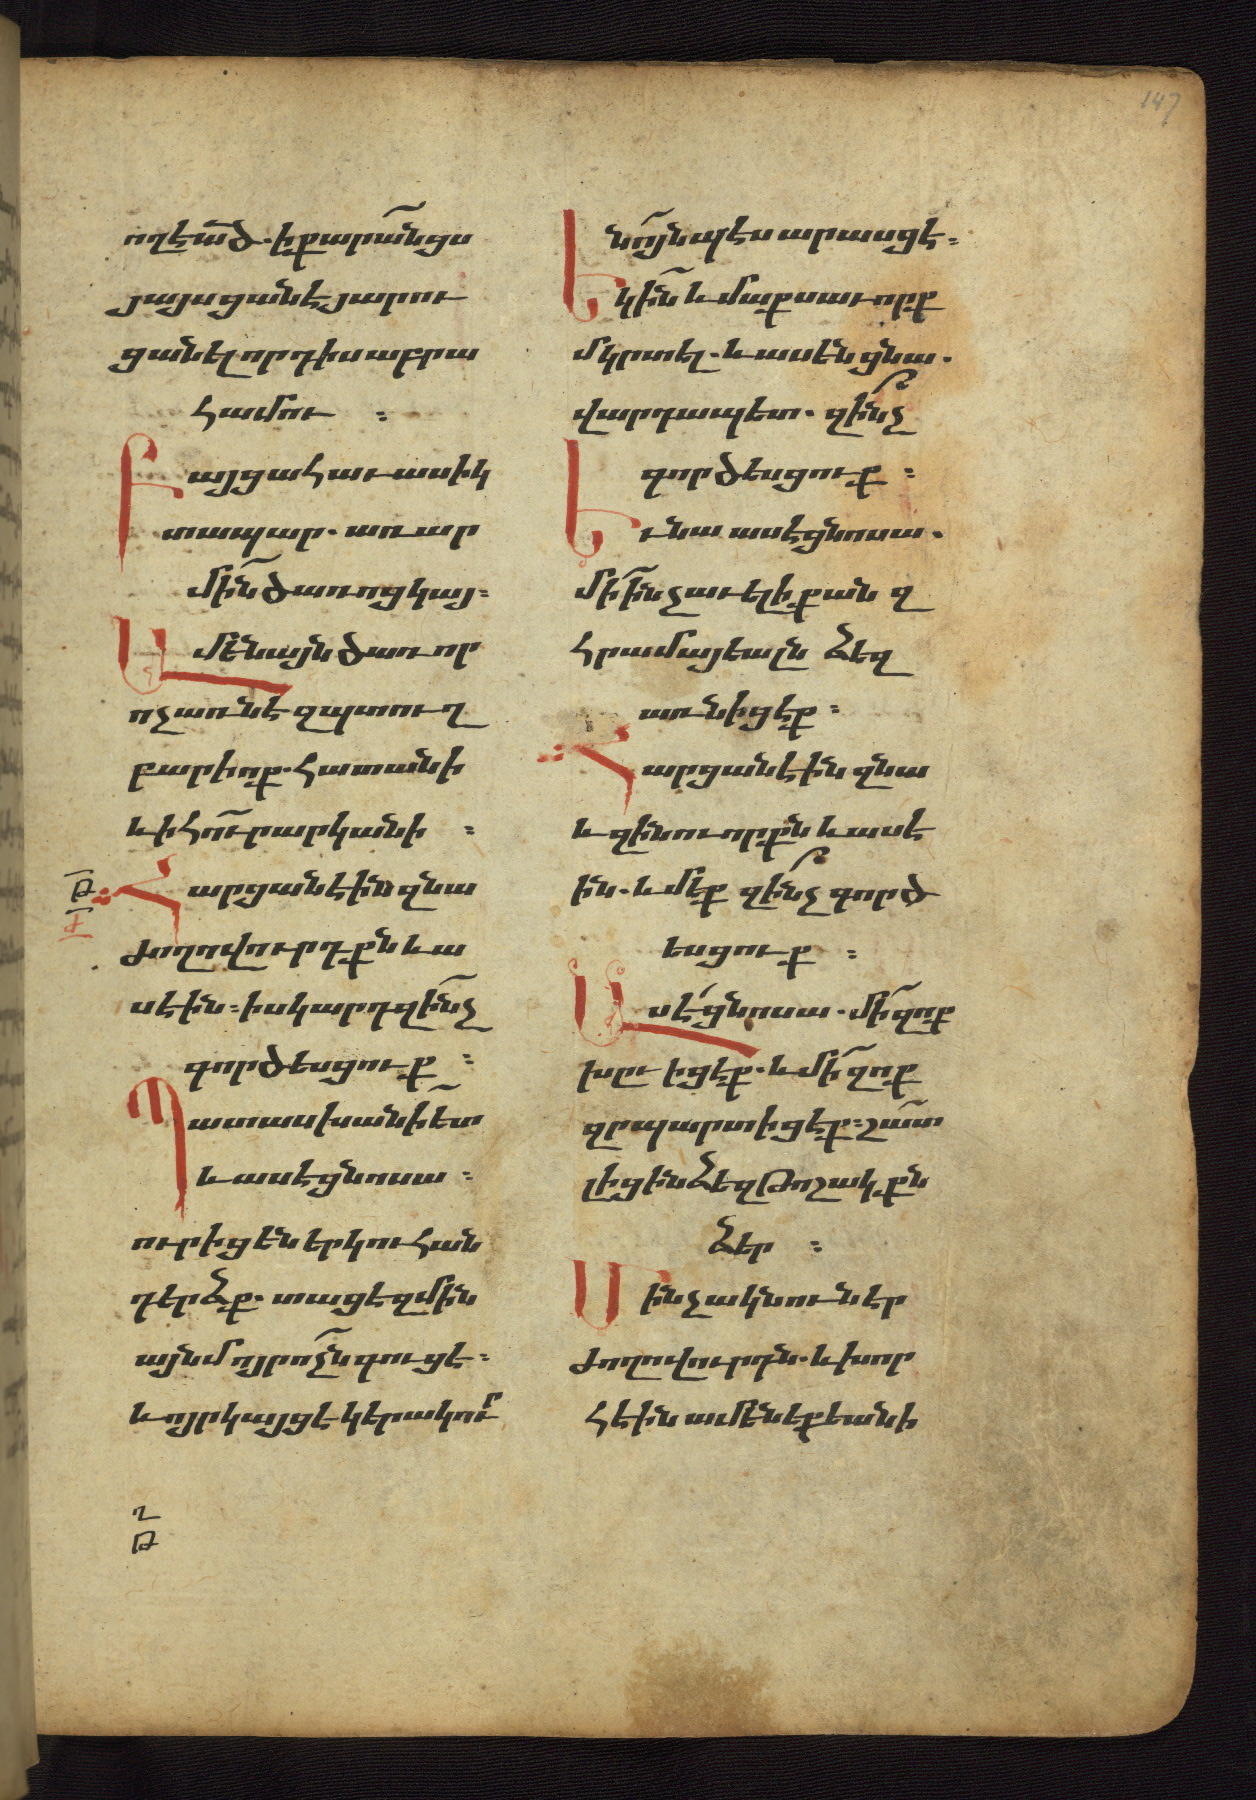 147
ողէ ած. ի քարանցս
յայսցանէ յարու
ցանել որդիս աբրա
համու :
Բայց ահաւասիկ
տապար. առ ար
մին ծառոց կայ:
Ամենայն ծառ որ
ոչ առնէ զպտուղ
բարիոք. հատանի
և ի հուր արկանի :
Թ
Ժ
Հարցանէին զնա
ժողովուրդքն և ա
սէին: իսկ արդ զինչ
գործեսցուք :
Պատասխանի ետ
և ասէ ցնոսա :
ոյր իցեն երկու հան
դերձք. տացէ զմին
այնմ ոյր ոչն գուցէ:
և ոյր կայցէ կերակուր
Ղ
Թ
և նոյնպէս արասցէ:
Եկին և մաքսաւորք
մկրտել. և ասեն ցնա.
վարդապետ. զինչ
գործեսցուք :
Եւ նա ասէ ցնոսա.
մի ինչ աւելի քան զ
հրամայեալն ձեզ
առնիցէք :
Հարցանէին զնա
և զինուորքն և ասէ
ին. և մեք զինչ գործ
եսցուք :
Ասէ ցնոսա. մի զոք
խռւիցէք. և մի զոք
զրպարտիցէք: շատ
լիցին ձեզ թոշակքն
ձեր :
Մինչ ակնուներ
ժողովուրդն. և խոր
հէին ամենեքեանի